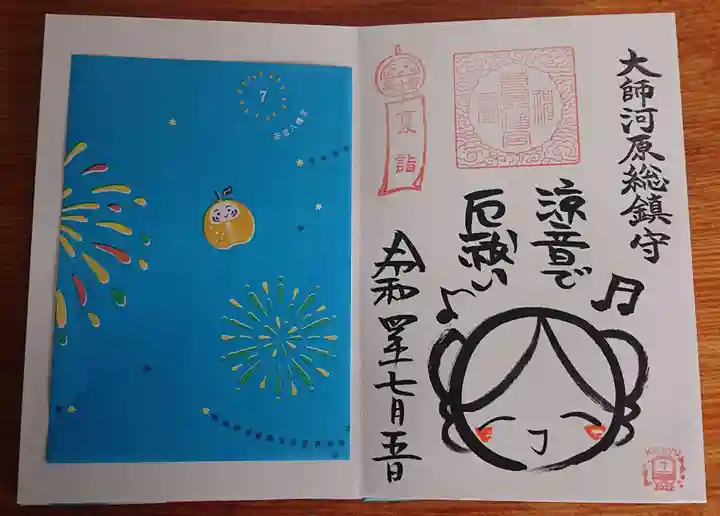 7
大師河原総鎮守
涼音で
厄祓い
夏詣
令和四年七月五日